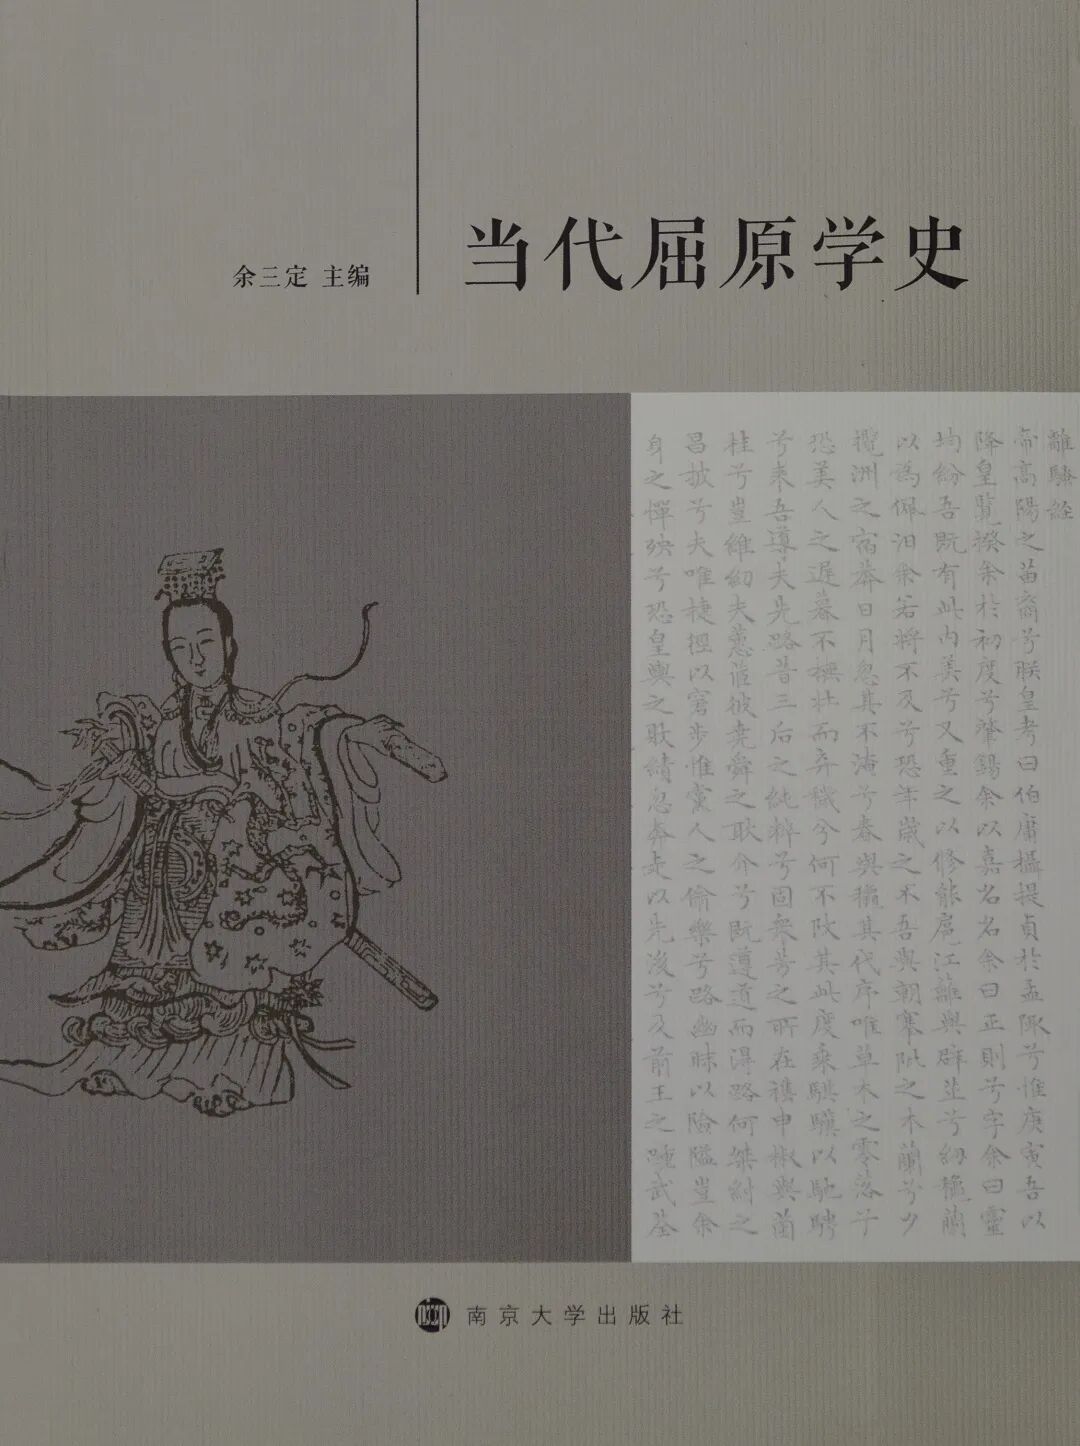 当代屈原学史
余三定 主编
離騷經
帝高陽之苗裔兮朕皇考曰伯庸攝提貞於孟陬兮惟庚寅吾以
降皇覽揆余於初度兮肇錫余以嘉名名余曰正則兮字余曰靈
均紛吾既有此內美兮又重之以脩能扈江離與辟芷兮紉穐蘭
以為佩汩余若將不及兮恐年歲之不吾與朝搴阰之木蘭兮夕
攬洲之宿莽日月忽其不淹兮春與穐其代序唯草木之零落兮
恐美人之遲暮不撫壯而弃穢兮何不改其此度乘騏驥以馳騁
兮來吾導夫先路昔三后之純粹兮固衆芳之所在雜申椒與菌
桂兮豈維紉夫蕙茝彼堯舜之耿介兮既遵道而得路何桀紂之
昌披兮夫唯捷徑以窘步惟黨人之偷樂兮路幽昧以險隘豈余
身之憚殃兮恐皇輿之敗績忽奔走以先後兮及前王之踵武荃
南京大学出版社